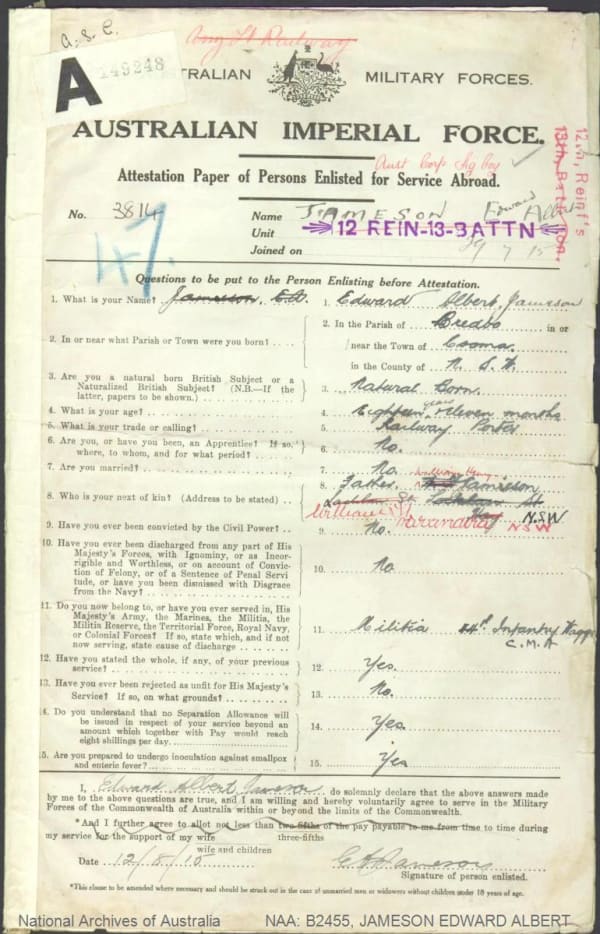 a. S. C. Army Lt Railway
A 149248
TRALIAN MILITARY FORCES.
AUSTRALIAN IMPERIAL FORCE.
Aust Corps Sig Coy
Attestation Paper of Persons Enlisted for Service Abroad.
12th Reinf's
13th Battalion.
No. 3814 Name JAMESON Edward Albert
Unit 12 REIN-13-BATTN
Joined on 7 15
47.
Questions to be put to the Person Enlisting before Attestation.
1. What is your Name? Jameson, E.A. 1. Edward Albert Jameson
2. In or near what Parish or Town were you born? 2. In the Parish of Bredbo in or
near the Town of Cooma
in the County of N. S. W.
3. Are you a natural born British Subject or a
Naturalized British Subject? (N.B.—If the
latter, papers to be shown.) 3. Natural Born.
4. What is your age? 4. Eighteen years eleven months
5. What is your trade or calling? 5. Railway Porter
6. Are you, or have you been, an Apprentice? If so,
where, to whom, and for what period? 6. No.
7. Are you married? 7. No
8. Who is your next of kin? (Address to be stated) 8. Father. William Jameson
William St Narandra NSW
9. Have you ever been convicted by the Civil Power? 9. No.
10. Have you ever been discharged from any part of His
Majesty's Forces, with Ignominy, or as Incor-
rigible and Worthless, or on account of Convic-
tion of Felony, or of a Sentence of Penal Servi
tude, or have you been dismissed with Disgrace
from the Navy? 10. No
11. Do you now belong to, or have you ever served in, His
Majesty's Army, the Marines, the Militia, the
Militia Reserve, the Territorial Force, Royal Navy,
or Colonial Forces? If so, state which, and if not
now serving, state cause of discharge 11. Militia 44th Infantry Wagga
C.M.A
12. Have you stated the whole, if any, of your previous
service? 12. Yes.
13. Have you ever been rejected as unfit for His Majesty's
Service? If so, on what grounds? 13. No.
14. Do you understand that no Separation Allowance will
be issued in respect of your service beyond an
amount which together with Pay would reach
eight shillings per day. 14. Yes
5. Are you prepared to undergo inoculation against smallpox
and enteric fever? 15. Yes
I, Edward Albert Jameson do solemnly declare that the above answers made
by me to the above questions are true, and I am willing and hereby voluntarily agree to serve in the Military
Forces of the Commonwealth of Australia within or beyond the limits of the Commonwealth.
*And I further agree to allot not less than two-fifths of the pay payable to me from time to time during
three-fifths
my service for the support of my wife
wife and children
Date 12/8/15 E A Jameson
Signature of person enlisted.
*This clause to be amended where necessary and should be struck out in the case of unmarried men or widowers without children under 18 years of age.
National Archives of Australia NAA: B2455, JAMESON EDWARD ALBERT